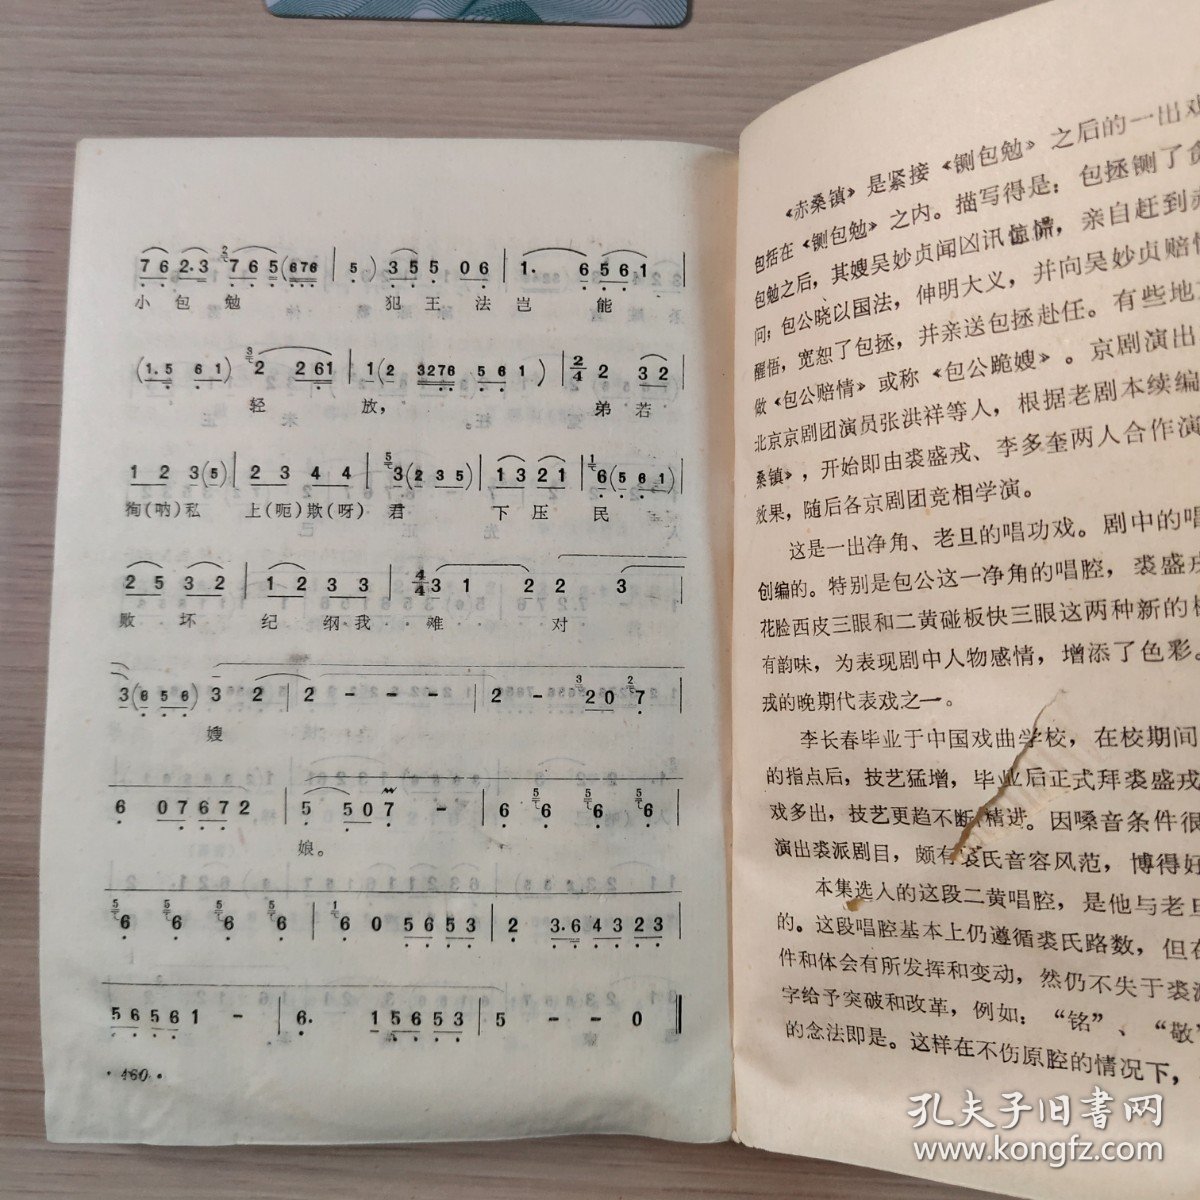 7 6 2·3 7 6 5(676 | 5) 3 5 5 0 6 | 1. 6 5 6 1 |
小 包 勉 犯 王 法 岂 能
(1.5 6 1) 2 2 61 | 1 (2 3276 5 6 1) | 2/4 2 3 2
轻 放, 弟 若
1 2 3(5) | 2 3 4 4 | 3(2 3 5) | 1 3 2 1 | 6(5 6 1)
徇(呐)私 上(呃)欺(呀) 君 下 压 民
2 5 3 2 | 1 2 3 3 | 4/4 3 1 2 2 3
败 坏 纪 纲 我 难 对
3(6 5 6) 3 2 | 2 - - - | 2 - 2 0 7
嫂
6 0 7 6 7 2 | 5 5 0 7 - | 6 6 6 6
娘。
6 6 6 6 | 6 0 5 6 5 3 | 2 3.6 4 3 2 3 |
5 6 5 6 1 - | 6. 1 5 6 5 3 | 5 - - 0 ‖
· 160 ·
《赤桑镇》是紧接《铡包勉》之后的一出戏
包括在《铡包勉》之内。描写得是：包拯铡了贪
包勉之后，其嫂吴妙贞闻凶讯惊慌，亲自赶到赤
问；包公晓以国法，伸明大义，并向吴妙贞赔情
醒悟，宽恕了包拯，并亲送包拯赴任。有些地方
做《包公赔情》或称《包公跪嫂》。京剧演出
北京京剧团演员张洪祥等人，根据老剧本续编
桑镇》，开始即由裘盛戎、李多奎两人合作演
效果，随后各京剧团竞相学演。
这是一出净角、老旦的唱功戏。剧中的唱
创编的。特别是包公这一净角的唱腔，裘盛戎
花脸西皮三眼和二黄碰板快三眼这两种新的板
有韵味，为表现剧中人物感情，增添了色彩。
戎的晚期代表戏之一。
李长春毕业于中国戏曲学校，在校期间
的指点后，技艺猛增，毕业后正式拜裘盛戎
戏多出，技艺更趋不断精进。因嗓音条件很
演出裘派剧目，颇有裘氏音容风范，博得好
本集选入的这段二黄唱腔，是他与老旦
的。这段唱腔基本上仍遵循裘氏路数，但在
件和体会有所发挥和变动，然仍不失于裘派
字给予突破和改革，例如：“铭”、“敬”
的念法即是。这样在不伤原腔的情况下，
孔夫子旧书网
www.kongfz.com